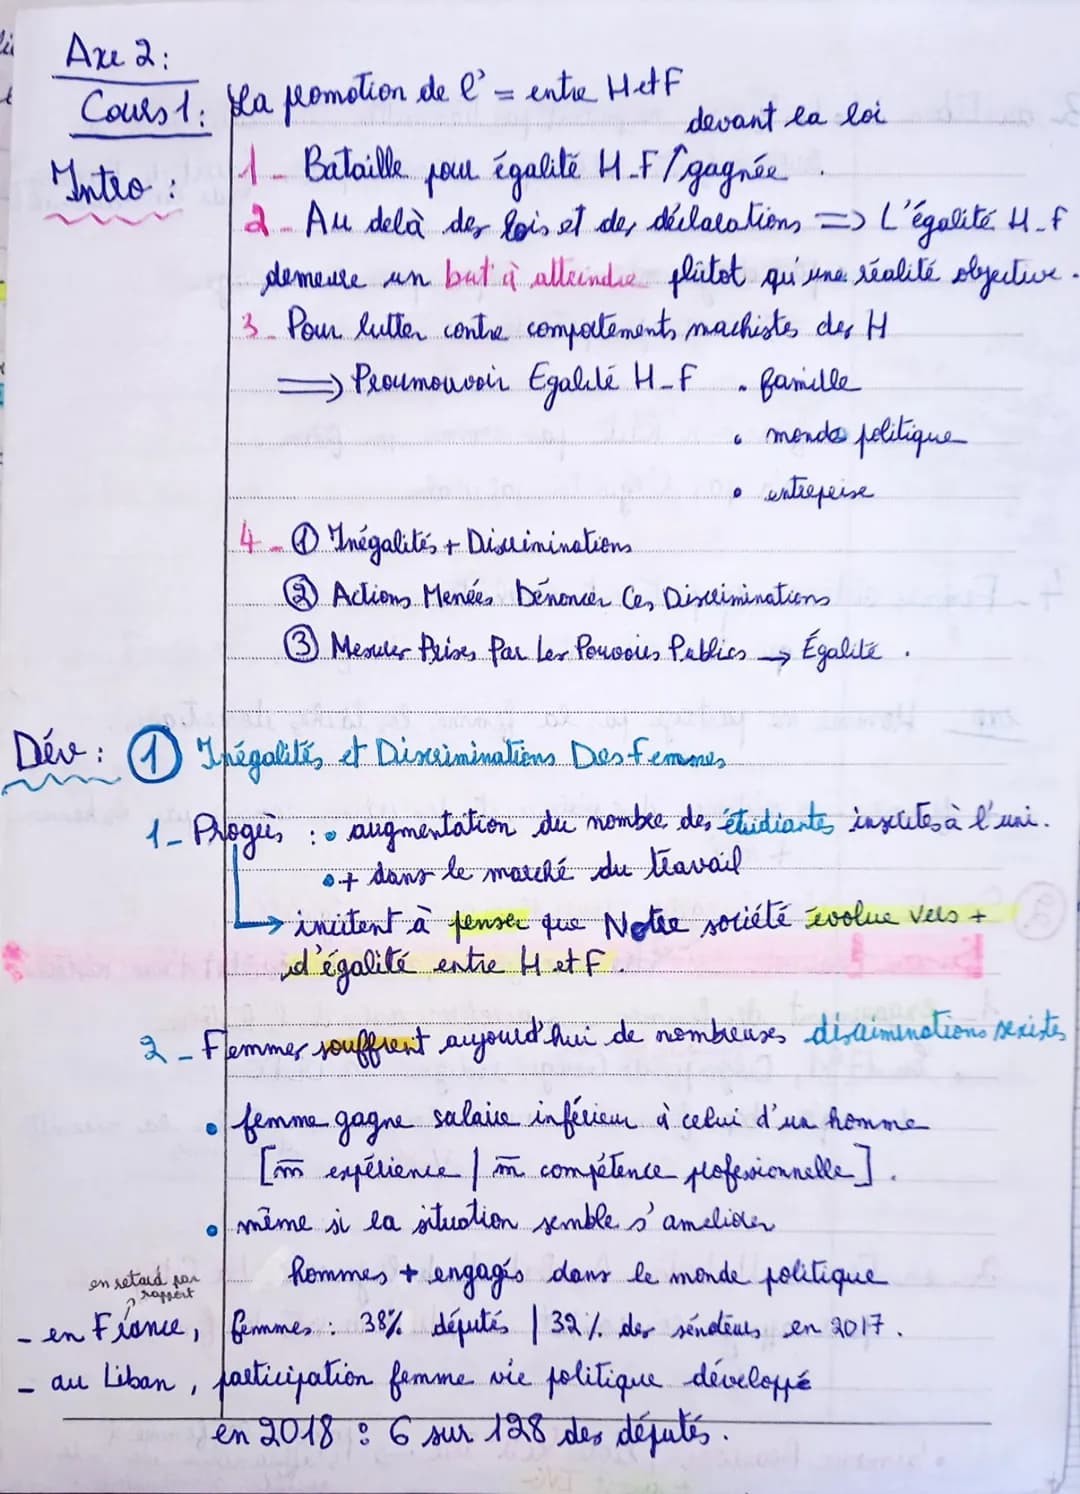 Axe 2:
Cours 1: La promotion de l' = entre H et F
devant la loi
Intro : 1 - Bataille pour égalité H-F / gagnée.
2 - Au delà des lois et des déclarations => L'égalité H-F
demeure un but à atteindre plûtot qu'une réalité objective.
3 - Pour lutter contre comportements machistes des H
=> Proumouvoir Egalité H-F • famille
• monde politique
• entreprise
4 - ① Inégalités + Discriminations
② Actions Menées Dénoncer Ces Discriminations
③ Mesures Prises Par Les Pouvoirs Publics → Égalité.
Dév : ① Inégalités et Discriminations Des Femmes
1 - Progrès : • augmentation du nombre des étudiantes inscrites à l'uni.
• + dans le marché du travail
→ incitent à penser que Notre société évolue vers +
d'égalité entre H et F.
2 - Femmes souffrent aujourd'hui de nombreuses discriminations sexistes
• femme gagne salaire inférieur à celui d'un homme
[m̄ expérience / m̄ compétence professionnelle].
• même si la situation semble s'améliorer
hommes + engagés dans le monde politique
en retard par
rapport
- en France, femmes : 38% députés | 32% des sénateurs en 2017.
- au Liban, participation femme vie politique développé
en 2018 : 6 sur 128 des députés.